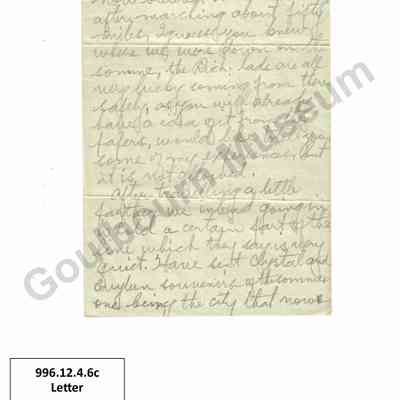 after marching about fifty
miles, I guess you knew
where we were down on the
somme, the Rich. lads are all
very lucky coming from there
safely, as you will already
have a idea of it from the
papers, would like to tell you
some of my experiences but
it is not
After travelling a little
farther we intend going in
and a certain part of the
line which they say is very
quiet. Have sent Chrystal and
Evelyn souvenirs of the somme
one being the city that now
Goulbourn Museum
996.12.4.6c
Letter